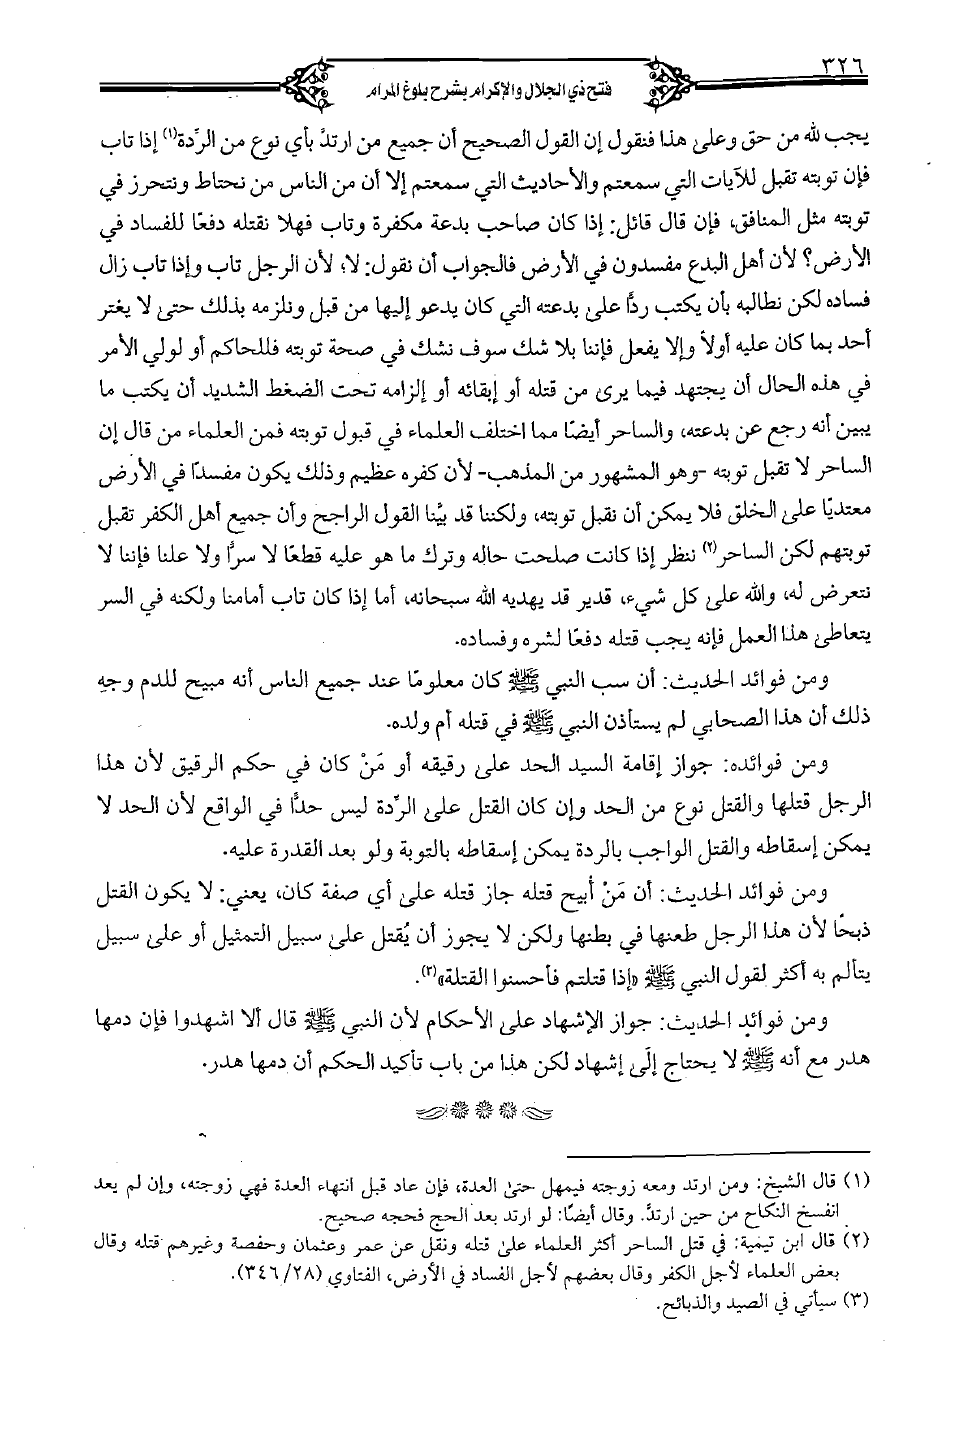 ٣٢٦
فتح ذي الجلال والإكرام بشرح بلوغ المرام
يجب لله من حق وعلى هذا فنقول إن القول الصحيح أن جميع من ارتدَّ بأي نوع من الرِّدة(١) إذا تاب
فإن توبته تقبل للآيات التي سمعتم والأحاديث التي سمعتم إلا أن من الناس من نحتاط ونتحرز في
توبته مثل المنافق، فإن قال قائل: إذا كان صاحب بدعة مكفرة وتاب فهلا نقتله دفعًا للفساد في
الأرض؟ لأن أهل البدع مفسدون في الأرض فالجواب أن نقول: لا؛ لأن الرجل تاب وإذا تاب زال
فساده لكن نطالبه بأن يكتب ردًّا على بدعته التي كان يدعو إليها من قبل ونلزمه بذلك حتى لا يغتر
أحد بما كان عليه أولاً وإلا يفعل فإننا بلا شك سوف نشك في صحة توبته فللحاكم أو لولي الأمر
في هذه الحال أن يجتهد فيما يرى من قتله أو إبقائه أو إلزامه تحت الضغط الشديد أن يكتب ما
يبين أنه رجع عن بدعته، والساحر أيضًا مما اختلف العلماء في قبول توبته فمن العلماء من قال إن
الساحر لا تقبل توبته -وهو المشهور من المذهب- لأن كفره عظيم وذلك يكون مفسدًا في الأرض
معتديًا على الخلق فلا يمكن أن نقبل توبته، ولكننا قد بيَّنا القول الراجح وأن جميع أهل الكفر تقبل
توبتهم لكن الساحر(٢) ننظر إذا كانت صلحت حاله وترك ما هو عليه قطعًا لا سرًّا ولا علنا فإننا لا
نتعرض له، والله على كل شيء، قدير قد يهديه الله سبحانه، أما إذا كان تاب أمامنا ولكنه في السر
يتعاطى هذا العمل فإنه يجب قتله دفعًا لشره وفساده.
ومن فوائد الحديث: أن سب النبي ﷺ كان معلومًا عند جميع الناس أنه مبيح للدم وجهِ
ذلك أن هذا الصحابي لم يستأذن النبي ﷺ في قتله أم ولده.
ومن فوائده: جواز إقامة السيد الحد على رقيقه أو مَنْ كان في حكم الرقيق لأن هذا
الرجل قتلها والقتل نوع من الحد وإن كان القتل على الرِّدة ليس حدًّا في الواقع لأن الحد لا
يمكن إسقاطه والقتل الواجب بالردة يمكن إسقاطه بالتوبة ولو بعد القدرة عليه.
ومن فوائد الحديث: أن مَنْ أبيح قتله جاز قتله على أي صفة كان، يعني: لا يكون القتل
ذبحًا لأن هذا الرجل طعنها في بطنها ولكن لا يجوز أن يُقتل على سبيل التمثيل أو على سبيل
يتألم به أكثر لقول النبي ﷺ «إذا قتلتم فأحسنوا القتلة»(٣).
ومن فوائد الحديث: جواز الإشهاد على الأحكام لأن النبي ﷺ قال ألا اشهدوا فإن دمها
هدر مع أنه ﷺ لا يحتاج إلَى إشهاد لكن هذا من باب تأكيد الحكم أن دمها هدر.
(١) قال الشيخ: ومن ارتد ومعه زوجته فيمهل حتى العدة، فإن عاد قبل انتهاء العدة فهي زوجته، وإن لم يعد
انفسخ النكاح من حين ارتدَّ. وقال أيضًا: لو ارتد بعد الحج فحجه صحيح.
(٢) قال ابن تيمية: في قتل الساحر أكثر العلماء على قتله ونقل عن عمر وعثمان وحفصة وغيرهم قتله وقال
بعض العلماء لأجل الكفر وقال بعضهم لأجل الفساد في الأرض، الفتاوي (٣٤٦/٢٨).
(٣) سيأتي في الصيد والذبائح.